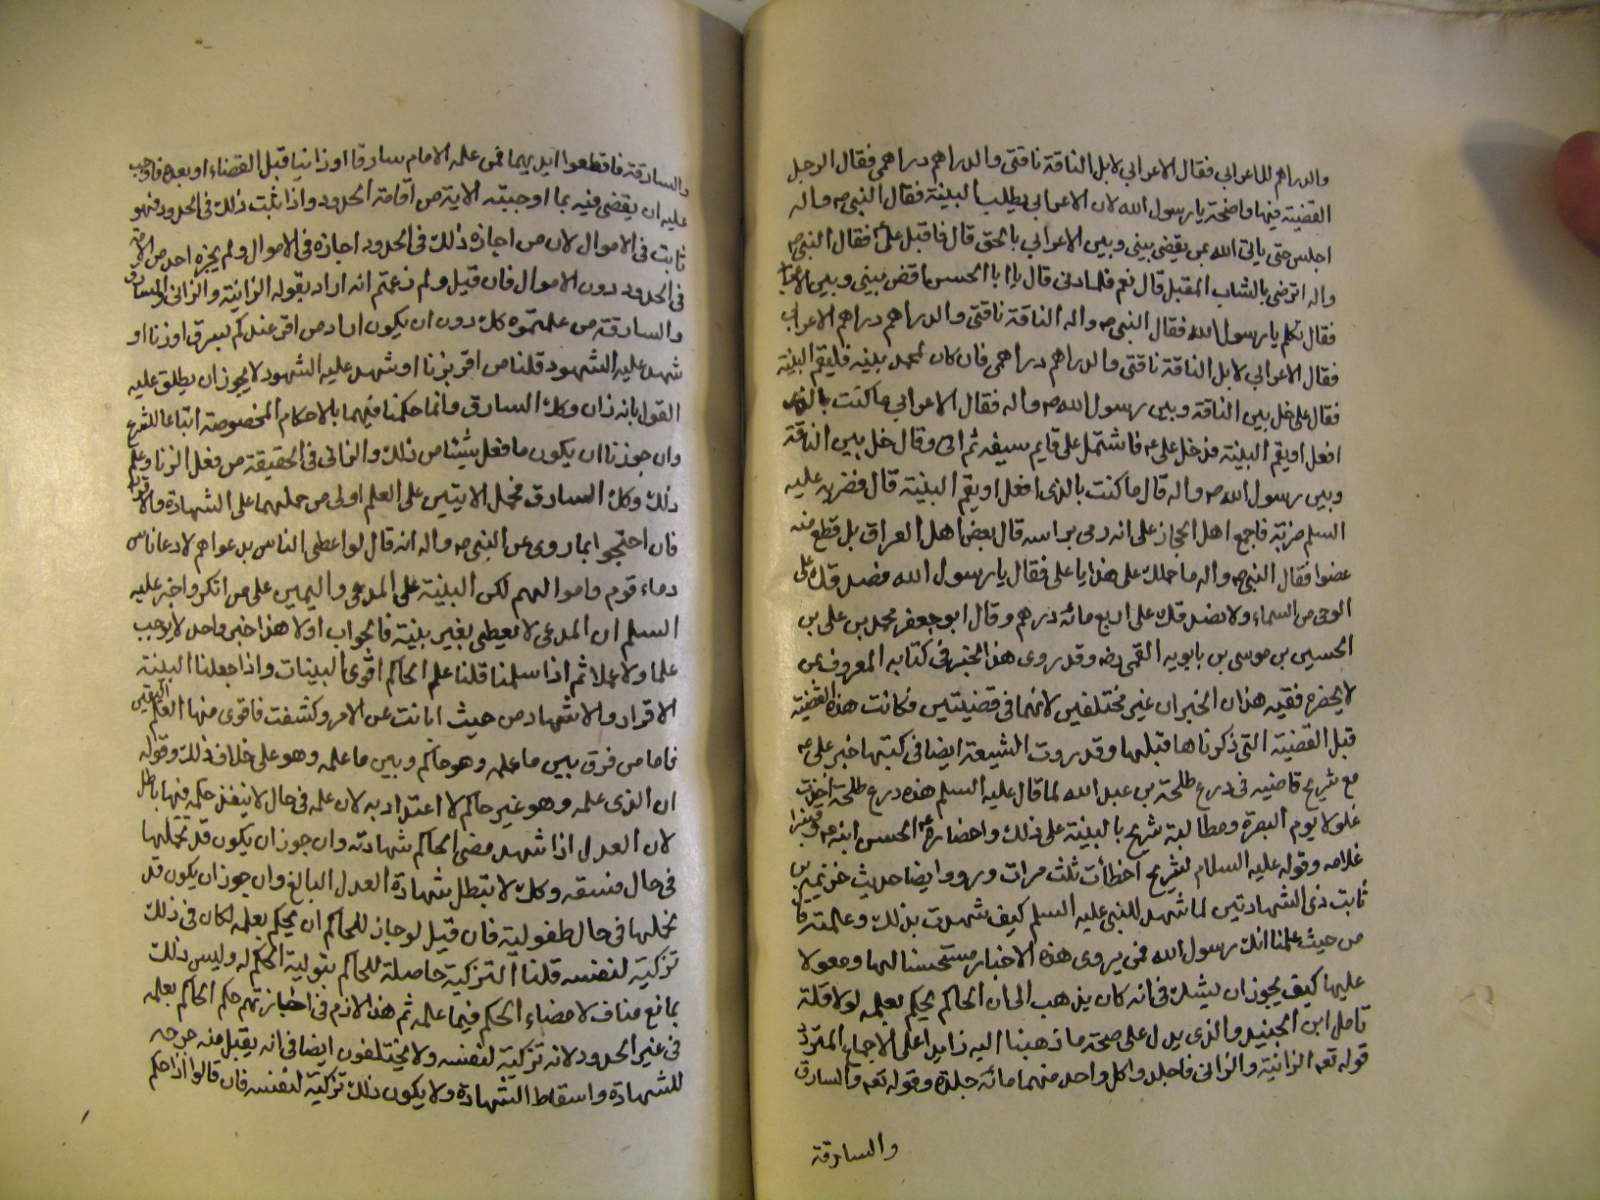 والدراهم للاعرابي فقال الاعرابي لابل الناقة ناقتى والدراهم دراهمى فقال الرجل
القضية فيها واضحة يا رسول الله لان الاعرابي يطلب البينة فقال النبى ص واله
اجلس حتى ياتى الله بمن يقضى بينى وبين الاعرابي بالحق قال فاقبل على فقال النبى ص
واله اترضى بالشاب المقبل قال نعم فلما دنى قال يا ابا الحسن اقض بينى وبين الاعرابي
فقال تكلم يا رسول الله فقال النبى ص واله الناقة ناقتى والدراهم دراهم الاعرابي
فقال الاعرابي لابل الناقة ناقتى والدراهم دراهمى فان كان لمحمد بينه فليقم البينة
فقال على خل بين الناقة وبين رسول الله ص واله فقال الاعرابي ما كنت بالذى
افعل اويقم البينة فدخل على ع فاشتمل على قايم سيفه ثم اتى وقال خل بين الناقة
وبين رسول الله ص واله قال ما كنت بالذى افعل اويقم البينة قال فضربه عليه
السلم ضربة فاجمع اهل الحجاز على انه رمى براسه قال بعض اهل العراق بل قطع منه
عضوا فقال النبى ص واله ما حملك على هذا يا على فقال يا رسول الله نصدقك على
الوحى من السماء ولا نصدقك على اربع مائة درهم وقال ابو جعفر محمد بن على بن
الحسين بن موسى بن بابويه القمى رضه وقد روى هذا الخبر فى كتابه المعروف بمن
لا يحضره فقيه هذان الخبران غير مختلفين لانهما فى قضيتين وكانت هذه القضية
قبل القضية التى ذكرناها قبلها وقد روت الشيعة ايضا فى كتبها خبر على ع
مع شريح قاضيه فى درع طلحة بن عبد الله لما قال عليه السلم هذه درع طلحة اخذت
غلولا يوم البصرة ومطالبة شريح بالبينة على ذلك واحضاره ع الحسن ابنه ع وقنبرا
غلامه وقوله عليه السلام لشريح اخطأت ثلث مرات ورووا ايضا حديث خزيمة بن
ثابت ذى الشهادتين لما شهد للنبى عليه السلم كيف شهدت بذلك وعلمته قال
من حيث علمنا انك رسول الله فمن يروى هذه الاخبار مستحسنا لها ومعولا
عليها كيف يجوز ان يشك فى انه كان يذهب الى ان الحاكم يحكم بعلمه لولا قلة
تامل ابن الجنيد والذى يدل على صحة ما ذهبنا اليه زايدا على الاجماع المتردد
قوله تعه الزانية والزانى فاجلدوا كل واحد منهما مائة جلدة وقوله تعه والسارق
والسارقة
والسارقة فاقطعوا ايديهما فمن علمه الامام سارقا او زانيا قبل القضاء او بعده فواجب
عليه ان يقضى فيه بما اوجبته الاية من اقامة الحدود واذا ثبت ذلك فى الحدود فهو
ثابت فى الاموال لان من اجازه ذلك فى الحدود اجازه فى الاموال ولم يجزه احد من الامة
فى الحدود دون الاموال فان قيل ولم زعمتم انه اراد بقوله الزانية والزانى والسارق
والسارقة من علمتموه كك دون ان يكون اراد من اقر عندكم بسرق او زنا او
شهد عليه الشهود قلنا من اقر بزنا او شهد عليه الشهود لا يجوز ان يطلق عليه
القول بانه زان وكك السارق وانما حكمنا فيهما بالاحكام المخصوصة اتباعا للشرع
وان جوزنا ان يكون ما فعل شيئا من ذلك والزانى فى الحقيقة من فعل الزنا وعلم
ذلك وكك السارق فحمل الايتين على العلم اولى من حملهما على الشهادة والاقرار
فان احتجوا بما روى عن النبى ص واله انه قال لو اعطى الناس بدعواهم لادعا ناس
دماء قوم واموالهم لكن البينة على المدعى واليمين على من انكر واخبر عليه
السلم ان المدعى لا يعطى بغير بينة فالجواب اولا هذا خبر واحد لا يوجب
علما ولا عملا ثم اذا سلمنا قلنا علم الحاكم اقوى البينات واذا جعلنا البينة
الاقرار والاشهاد من حيث ابانت عن الامر وكشفت فاقوى منها العلم اليقين
فاما من فرق بين ما علمه وهو حاكم وبين ما علمه وهو على خلاف ذلك وقوله
ان الذى علمه وهو غير حاكم لا اعتداد به لان علمه فى حال لا ينفذ حكمه فيها باطل
لان العدل اذا شهد مضى الحاكم شهادته وان جوز ان يكون قد تحملها
فى حال فسقه وكك لا تبطل شهادة العدل البالغ وان جوز ان يكون قد
تحملها فى حال طفولية فان قيل لو جاز للحاكم ان يحكم بعلمه لكان فى ذلك
تزكية لنفسه قلنا التزكية حاصلة للحاكم بتولية الحكم له وليس ذلك
بمانع مناف لامضاء الحكم فيما علمه ثم هذا لازم فى اجازتهم حكم الحاكم بعلمه
فى غير الحدود لانه تزكية لنفسه ولا يختلفون ايضا فى انه يقبل منه جرحه
للشهادة واسقاط الشهادة ولا يكون ذلك تزكية لنفسه فان قالوا اذا حكم